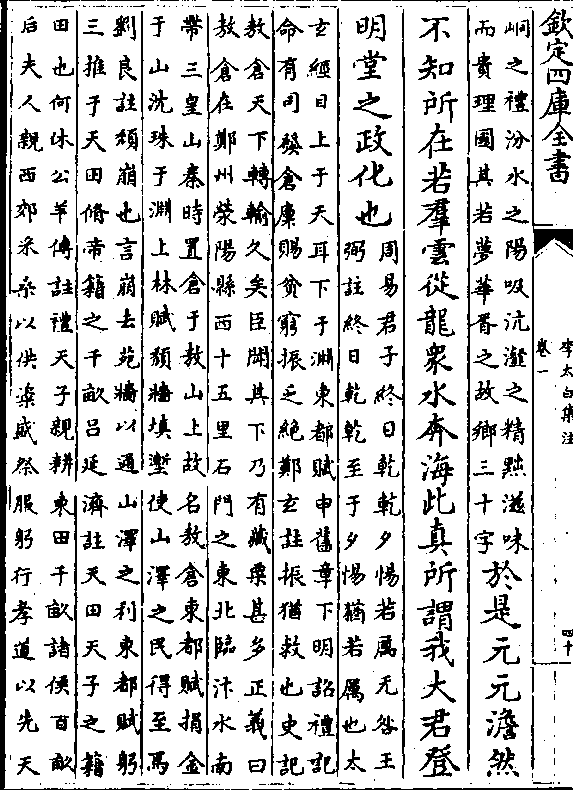 欽定四庫全書
李太白集注
卷一
四十
峒之禮汾水之陽吸沆瀣之精黜滋味
而貴理國其若夢華胥之故鄉三十字
於是元元澹然
不知所在若羣雲從龍衆水奔海此真所謂我大君登
明堂之政化也
周易君子終日乾乾夕惕若厲无咎王
弼註終日乾乾至于夕惕猶若厲也太
玄經曰上于天耳下于淵東都賦申舊章下明詔禮記
命有司發倉廩賜貧窮振乏絕鄭玄註振猶救也史記
敖倉天下轉輸久矣臣聞其下乃有藏粟甚多正義曰
敖倉在鄭州滎陽縣西十五里石門之東北臨汴水南
帶三皇山秦時置倉于敖山上故名敖倉東都賦捐金
于山沈珠于淵上林賦頽牆填塹使山澤之民得至焉
劉良註頽崩也言崩去苑牆以通山澤之利東都賦躬
三推于天田脩帝籍之千畝吕延濟註天田天子之籍
田也何休公羊傳註禮天子親耕東田千畝諸侯百畝
后夫人親西郊采桑以供粢盛祭服躬行孝道以先天